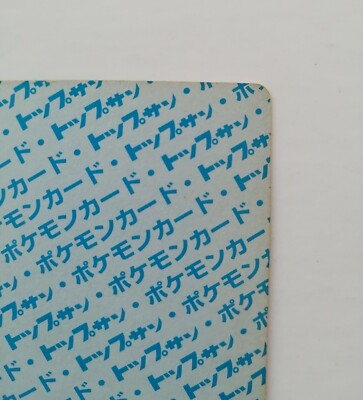 トップサン・ポ
ド・トップサン・
カード・トップサン・
ンカード・トップサン
モンカード・トップ
ケモンカード・
ポケモンカード・
・ポケモンカード・
サン・ポケモンカード
トップサン・ポケモン
・トップサン・ポケモ
ド・トップサン・ポ
カード・トップサン